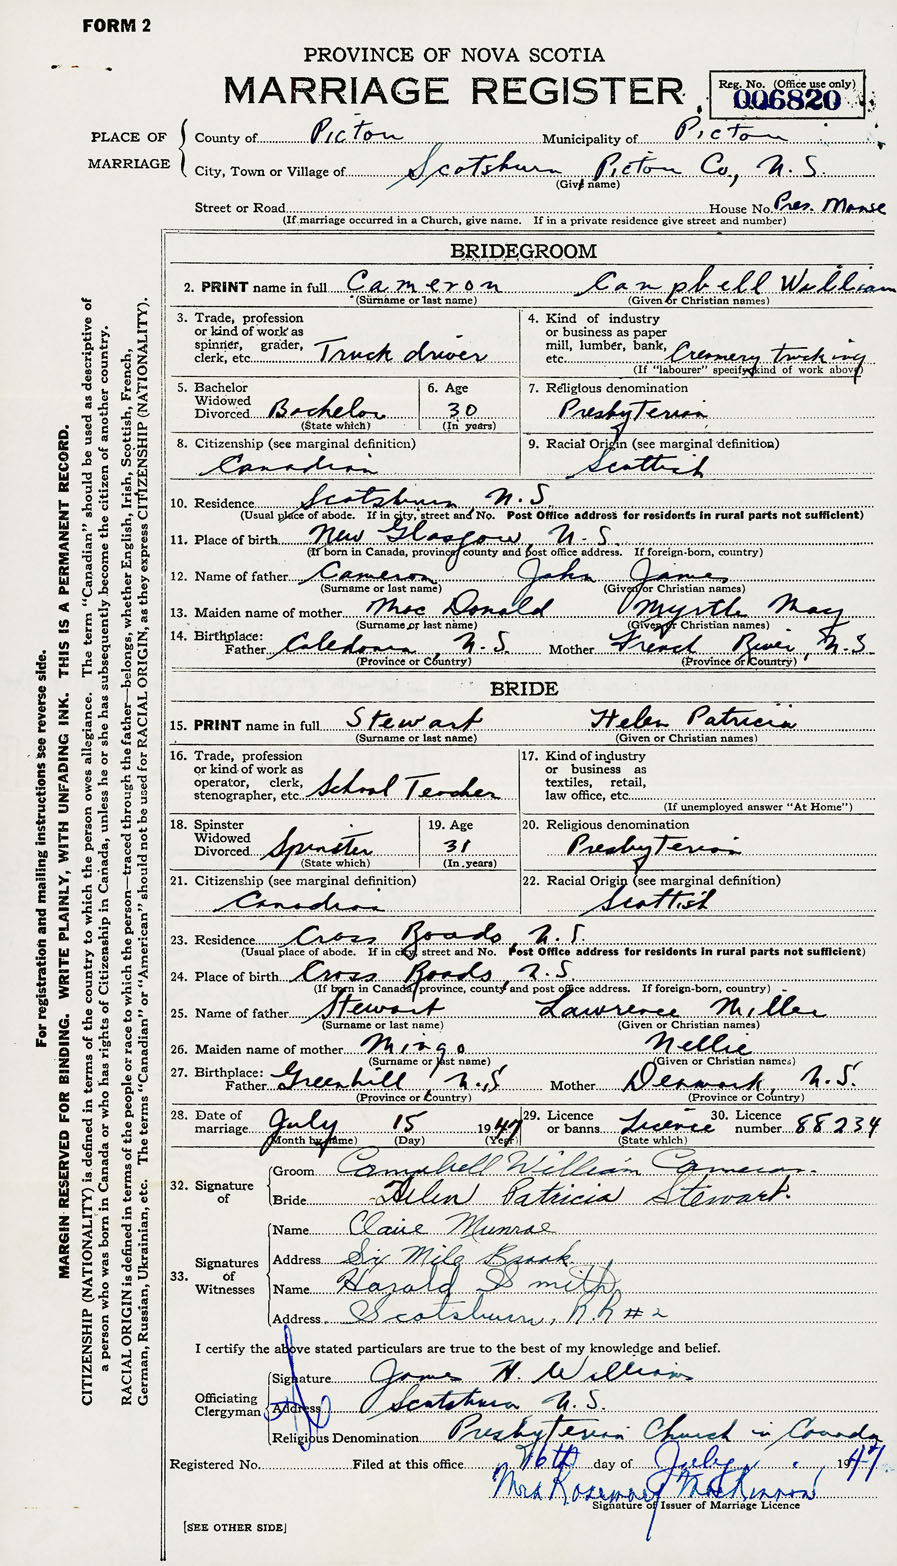 FORM 2
PROVINCE OF NOVA SCOTIA
MARRIAGE REGISTER
Reg. No. (Office use only)
006820
PLACE OF MARRIAGE
County of Picton Municipality of Picton
City, Town or Village of Scotsburn Picton Co., N.S.
(Give name)
Street or Road House No. Pres. Manse
(If marriage occurred in a Church, give name. If in a private residence give street and number)
BRIDEGROOM
2. PRINT name in full Cameron Campbell William
(Surname or last name) (Given or Christian names)
3. Trade, profession or kind of work as spinner, grader, clerk, etc. Truck driver
4. Kind of industry or business as paper mill, lumber, bank, etc. Creamery trucking
(If "labourer" specify kind of work above)
5. Bachelor Widowed Divorced Bachelor
(State which)
6. Age 30
(In years)
7. Religious denomination
Presbyterian
8. Citizenship (see marginal definition)
Canadian
9. Racial Origin (see marginal definition)
Scottish
10. Residence Scotsburn, N.S.
(Usual place of abode. If in city, street and No. Post Office address for residents in rural parts not sufficient)
11. Place of birth New Glasgow, N.S.
(If born in Canada, province, county and post office address. If foreign-born, country)
12. Name of father Cameron John James
(Surname or last name) (Given or Christian names)
13. Maiden name of mother Mac Donald Myrtle May
(Surname or last name) (Given or Christian names)
14. Birthplace:
Father Caledonia, N.S. Mother French River, N.S.
(Province or Country) (Province or Country)
BRIDE
15. PRINT name in full Stewart Helen Patricia
(Surname or last name) (Given or Christian names)
16. Trade, profession or kind of work as operator, clerk, stenographer, etc. School Teacher
17. Kind of industry or business as textiles, retail, law office, etc.
(If unemployed answer "At Home")
18. Spinster Widowed Divorced Spinster
(State which)
19. Age 31
(In years)
20. Religious denomination
Presbyterian
21. Citizenship (see marginal definition)
Canadian
22. Racial Origin (see marginal definition)
Scottish
23. Residence Cross Roads N.S.
(Usual place of abode. If in city, street and No. Post Office address for residents in rural parts not sufficient)
24. Place of birth Cross Roads, N.S
(If born in Canada, province, county and post office address. If foreign-born, country)
25. Name of father Stewart Lawrence Miller
(Surname or last name) (Given or Christian names)
26. Maiden name of mother Mingo Nellie
(Surname or last name) (Given or Christian names)
27. Birthplace:
Father Greenhill, N.S Mother Denmark, N.S.
(Province or Country) (Province or Country)
28. Date of marriage July 15 1947
(Month by name) (Day) (Year)
29. Licence or banns Licence
(State which)
30. Licence number 88234
32. Signature of
Groom Campbell William Cameron.
Bride Helen Patricia Stewart.
33. Signatures of Witnesses
Name Claire Munroe
Address Six Mile Brook
Name Harold Smith
Address Scotsburn, R.R #2
I certify the above stated particulars are true to the best of my knowledge and belief.
Officiating Clergyman
Signature James H. Williams
Address Scotsburn N.S.
Religious Denomination Presbyterian Church in Canada
Registered No. Filed at this office 16th day of July 1947
Mrs Rosemary MacKinnon
Signature of Issuer of Marriage Licence
[SEE OTHER SIDE]
For registration and mailing instructions see reverse side.
MARGIN RESERVED FOR BINDING. WRITE PLAINLY, WITH UNFADING INK. THIS IS A PERMANENT RECORD.
CITIZENSHIP (NATIONALITY) is defined in terms of the country to which the person owes allegiance. The term "Canadian" should be used as descriptive of
a person who was born in Canada or who has rights of Citizenship in Canada, unless he or she has subsequently become the citizen of another country.
RACIAL ORIGIN is defined in terms of the people or race to which the person—traced through the father—belongs, whether English, Irish, Scottish, French,
German, Russian, Ukrainian, etc. The terms "Canadian" or "American" should not be used for RACIAL ORIGIN, as they express CITIZENSHIP (NATIONALITY).